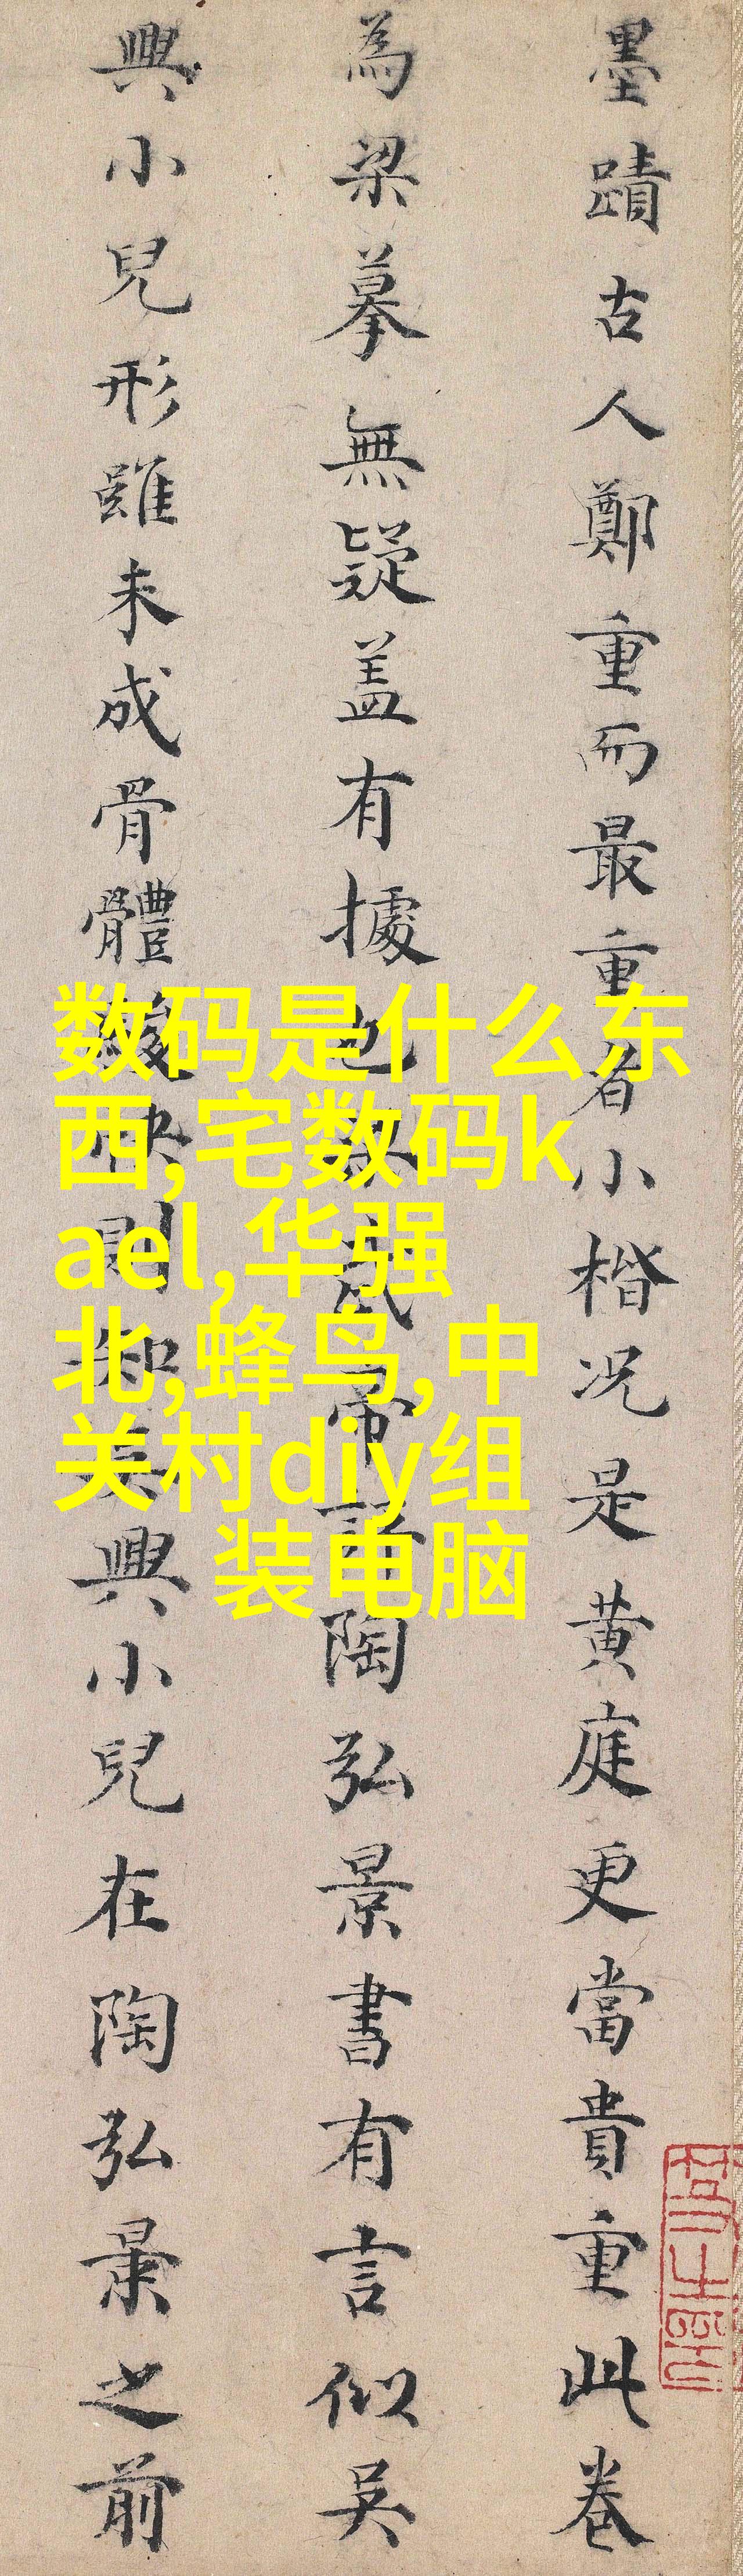 墨蹟古人鄭重而最重者小楷況是黄庭更當貴重此卷
為梁摹無疑盖有據也梁武帝評陶弘景書有言似吳
興小兒形雖未成骨體駿快則知吳興小兒在陶弘景之前
数码是什么东
西,宅数码k
ael,华强
北,蜂鸟,中
关村diy组
装电脑